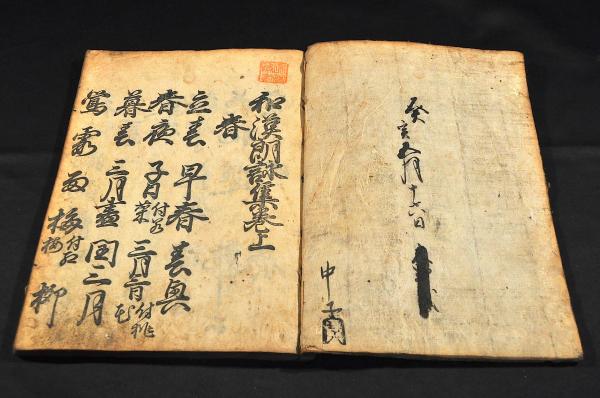 癸亥五月十六日
和漢朗詠集卷上
春
立春 早春 春興
春夜 子日付若菜 三月三日付桃花
暮春 三月盡 閏三月
鶯 霞 雨 梅付紅梅 柳